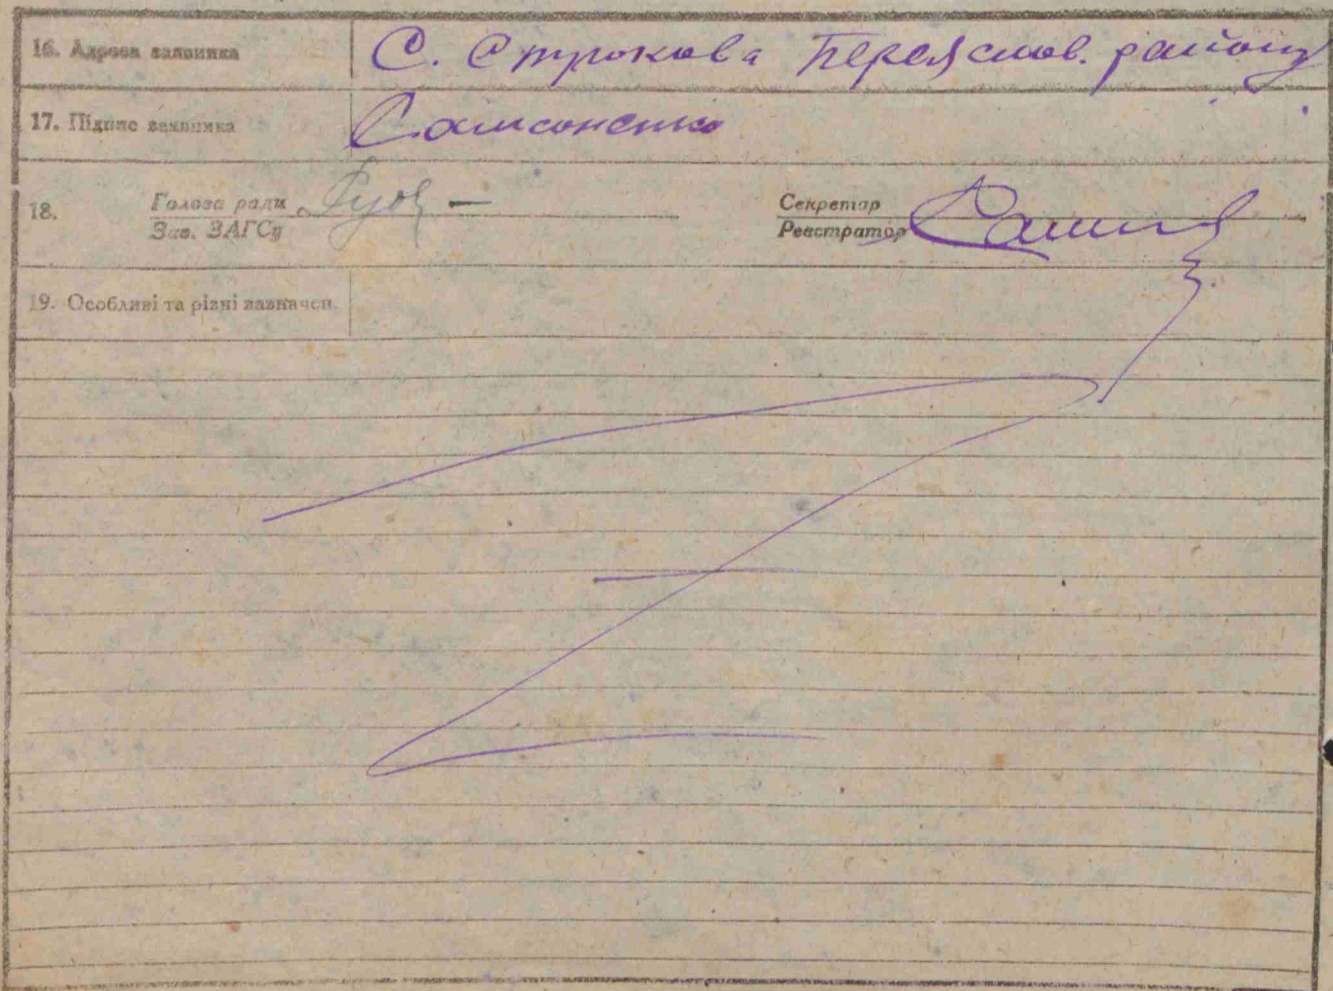 16. Адреса заявника С. Строкова Переяслав. району
17. Підпис заявника Самсоненко
18. Голова ради Секретар
Зав. ЗАГСу Реєстратор
19. Особливі та різні зазначен.